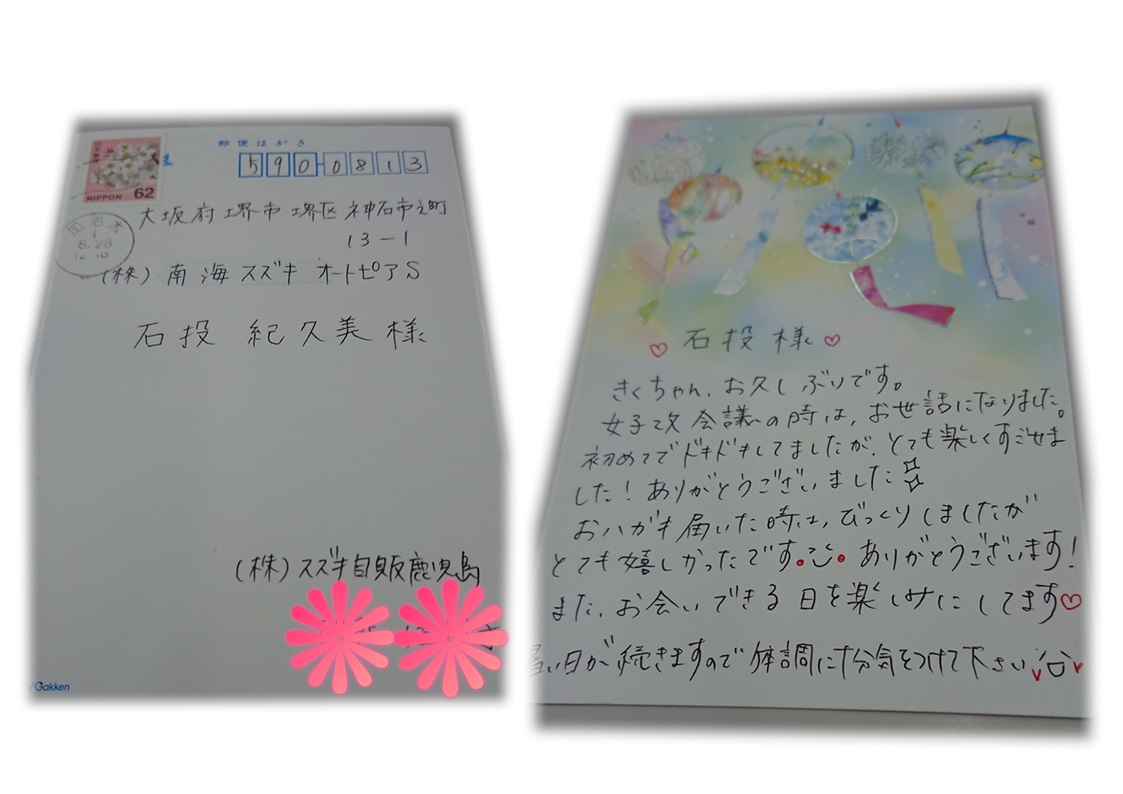 郵便はがき
590-0813
日本郵便
NIPPON 62
8.28
大坂府堺市堺区神石市之町
13-1
(株)南海スズキオートピアS
石投 紀久美様
(株)スズキ自販鹿児島
Gakken
石投様
きくちゃん、お久しぶりです。
女子改会議の時は、お世話になりました。
初めてでドキドキしてましたが、とても楽しくすごせま
した!ありがとうございました
おハガキ届いた時は、びっくりしましたが
とても嬉しかったです。ありがとうございます!
また、お会いできる日を楽しみにしてます♡
暑い日が続きますので体調に十分気をつけて下さい